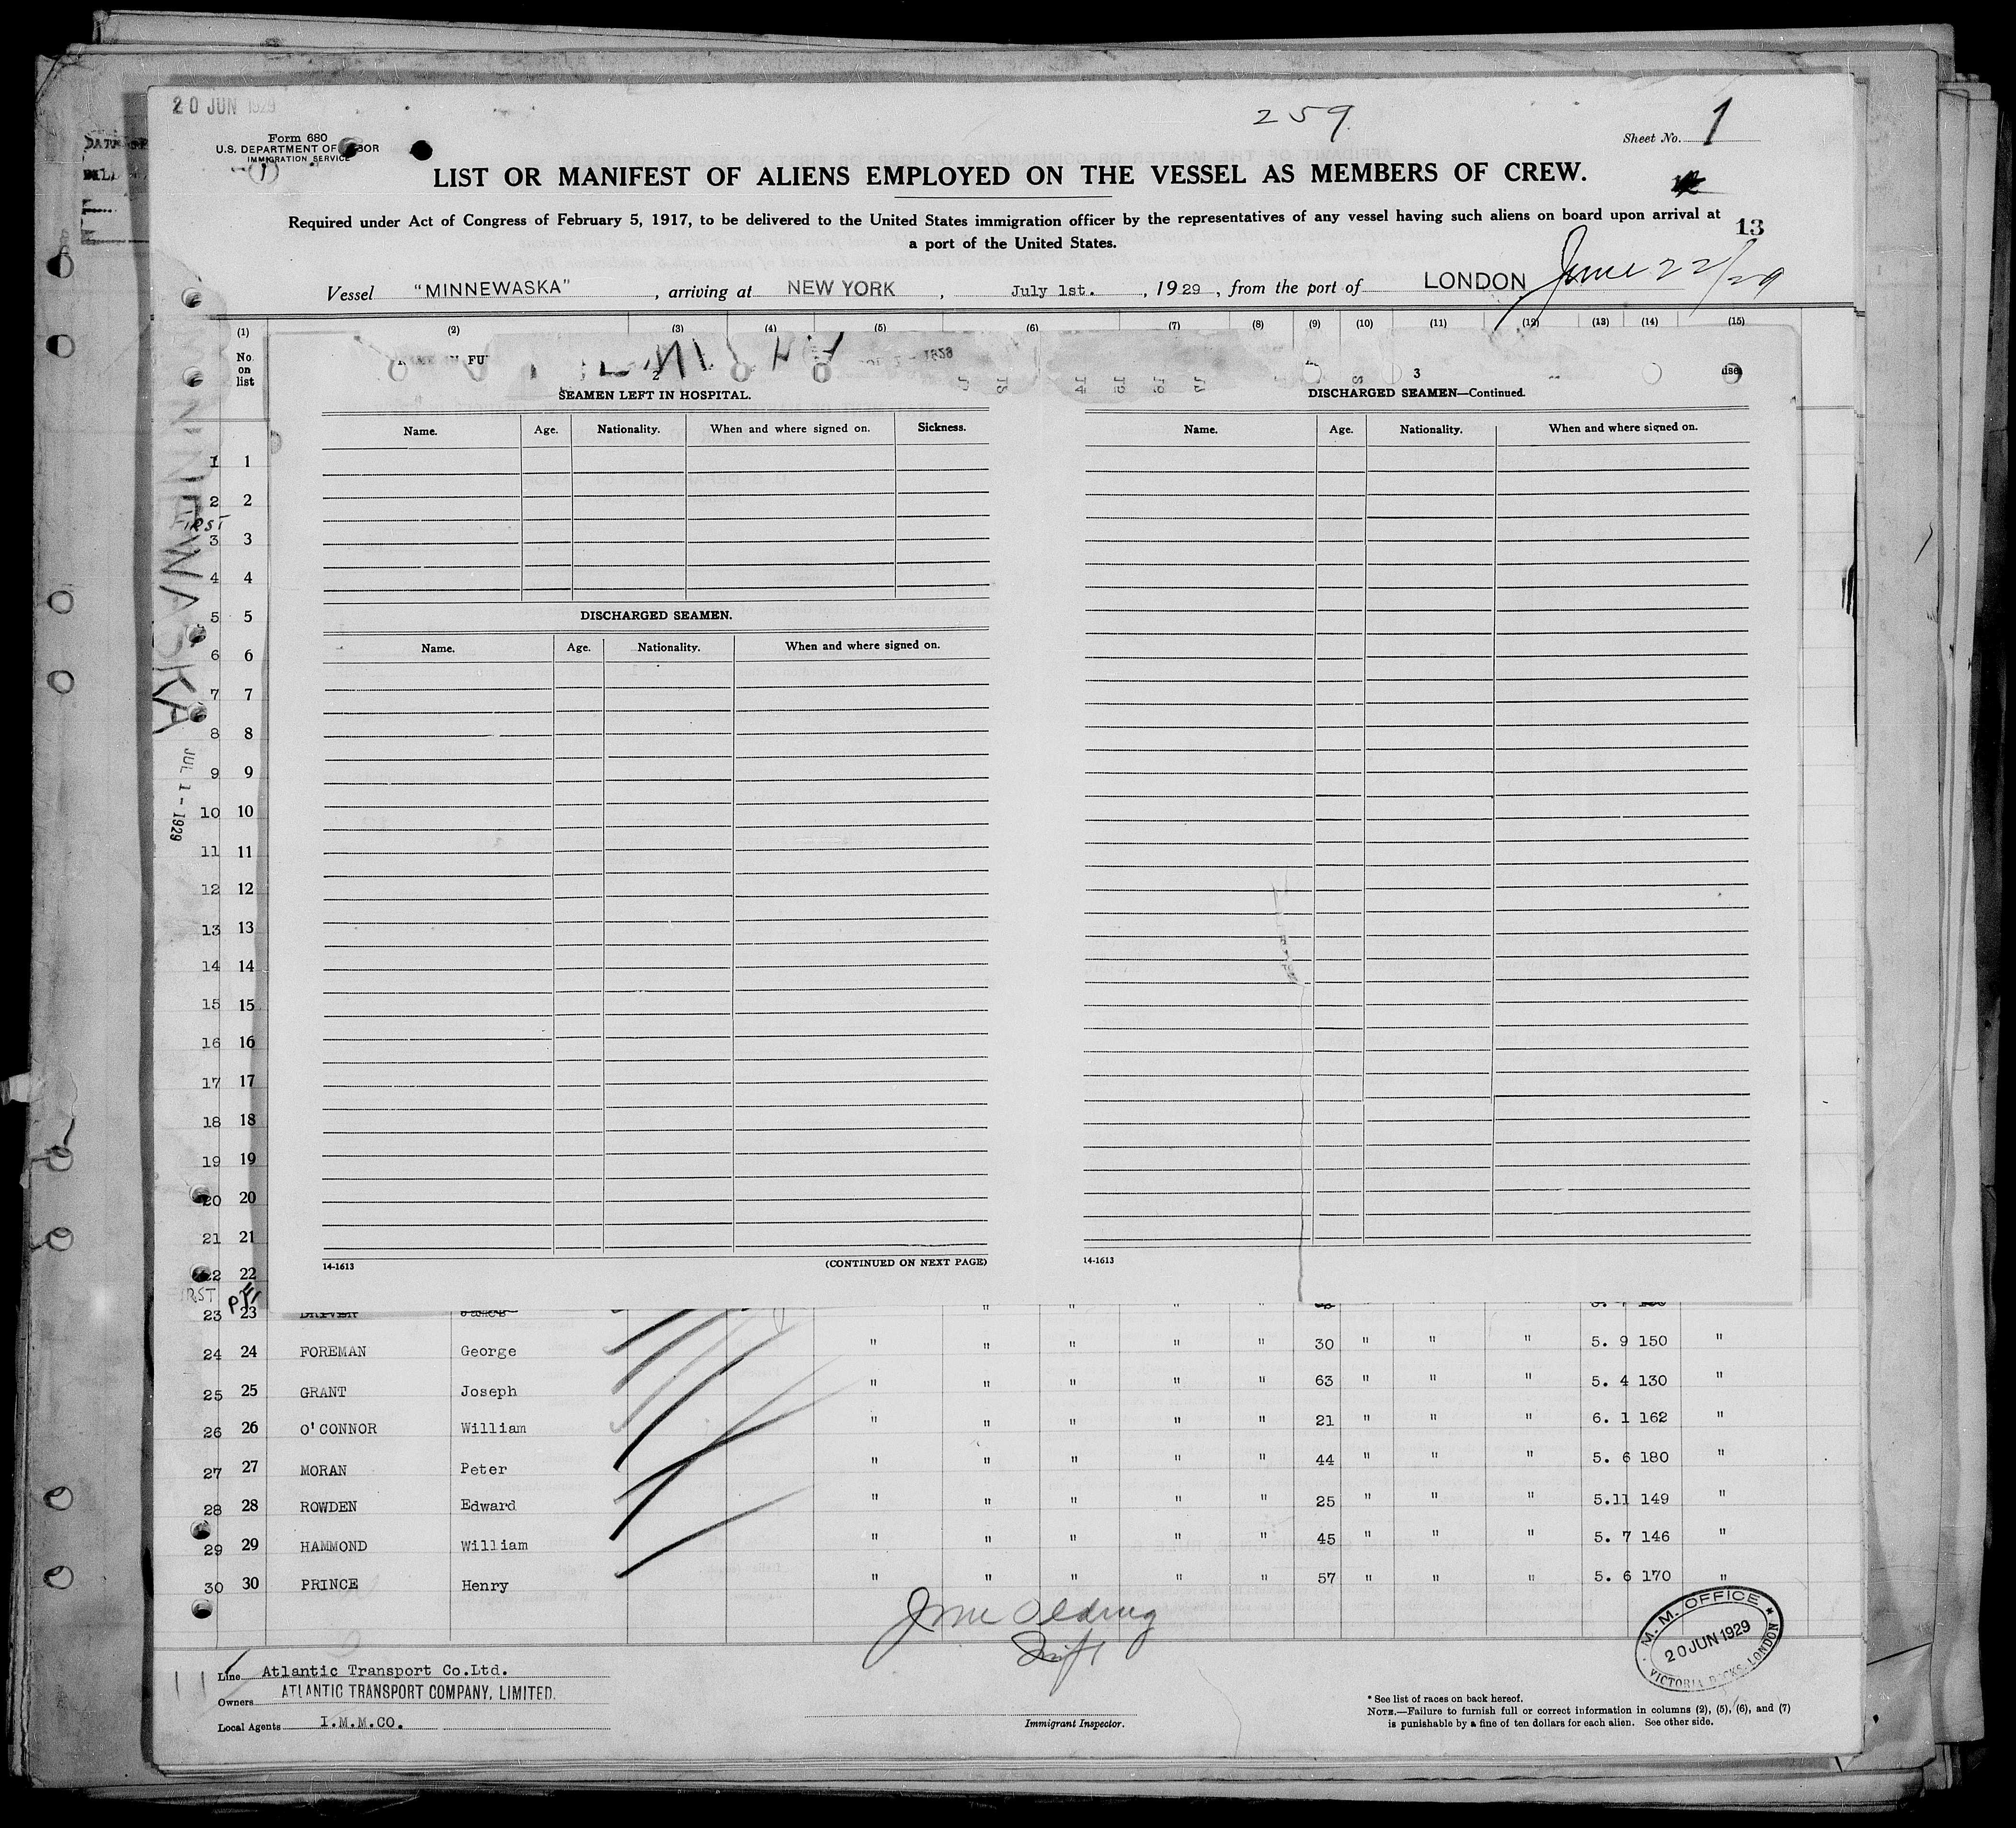 20 JUN 1929
259
Form 680
U.S. DEPARTMENT OF LABOR
IMMIGRATION SERVICE
Sheet No. 1
LIST OR MANIFEST OF ALIENS EMPLOYED ON THE VESSEL AS MEMBERS OF CREW.
Required under Act of Congress of February 5, 1917, to be delivered to the United States immigration officer by the representatives of any vessel having such aliens on board upon arrival at
a port of the United States.
13
Vessel "MINNEWASKA", arriving at NEW YORK, July 1st., 1929, from the port of LONDON June 22/29
(1) (2) (3) (4) (5) (6) (7) (8) (9) (10) (11) (12) (13) (14) (15)
No. on list
MINNEWASKA
JUL 1 - 1929
2
SEAMEN LEFT IN HOSPITAL.
Name. Age. Nationality. When and where signed on. Sickness.
DISCHARGED SEAMEN.
Name. Age. Nationality. When and where signed on.
14-1613 (CONTINUED ON NEXT PAGE)
3
DISCHARGED SEAMEN—Continued.
Name. Age. Nationality. When and where signed on.
14-1613
1 1
2 2
3 3
4 4
5 5
6 6
7 7
8 8
9 9
10 10
11 11
12 12
13 13
14 14
15 15
16 16
17 17
18 18
19 19
20 20
21 21
22 22
23 23 DRIVER James
24 24 FOREMAN George " " " " " 30 " " " 5. 9 150 "
25 25 GRANT Joseph " " " " " 63 " " " 5. 4 130 "
26 26 O'CONNOR William " " " " " 21 " " " 6. 1 162 "
27 27 MORAN Peter " " " " " 44 " " " 5. 6 180 "
28 28 ROWDEN Edward " " " " " 25 " " " 5.11 149 "
29 29 HAMMOND William " " " " " 45 " " " 5. 7 146 "
30 30 PRINCE Henry " " " " " 57 " " " 5. 6 170 "
M. M. OFFICE
20 JUN 1929
VICTORIA DOCKS, LONDON
Line Atlantic Transport Co.Ltd.
Owners ATLANTIC TRANSPORT COMPANY, LIMITED.
Local Agents I.M.M.CO.
Immigrant Inspector.
* See list of races on back hereof.
NOTE.—Failure to furnish full or correct information in columns (2), (5), (6), and (7)
is punishable by a fine of ten dollars for each alien. See other side.